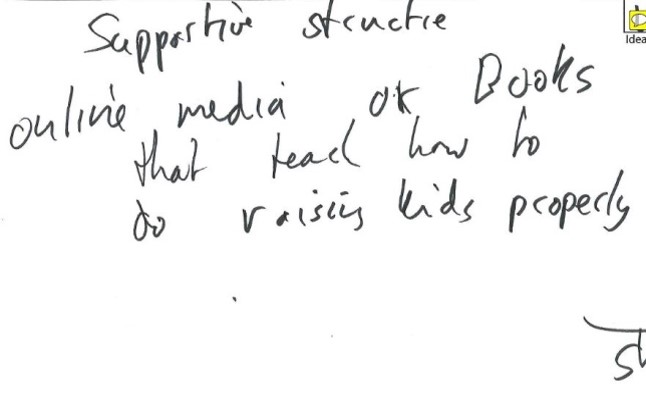 Supportive structre
Idea
online media or Books
that teach how to
do raising kids properly